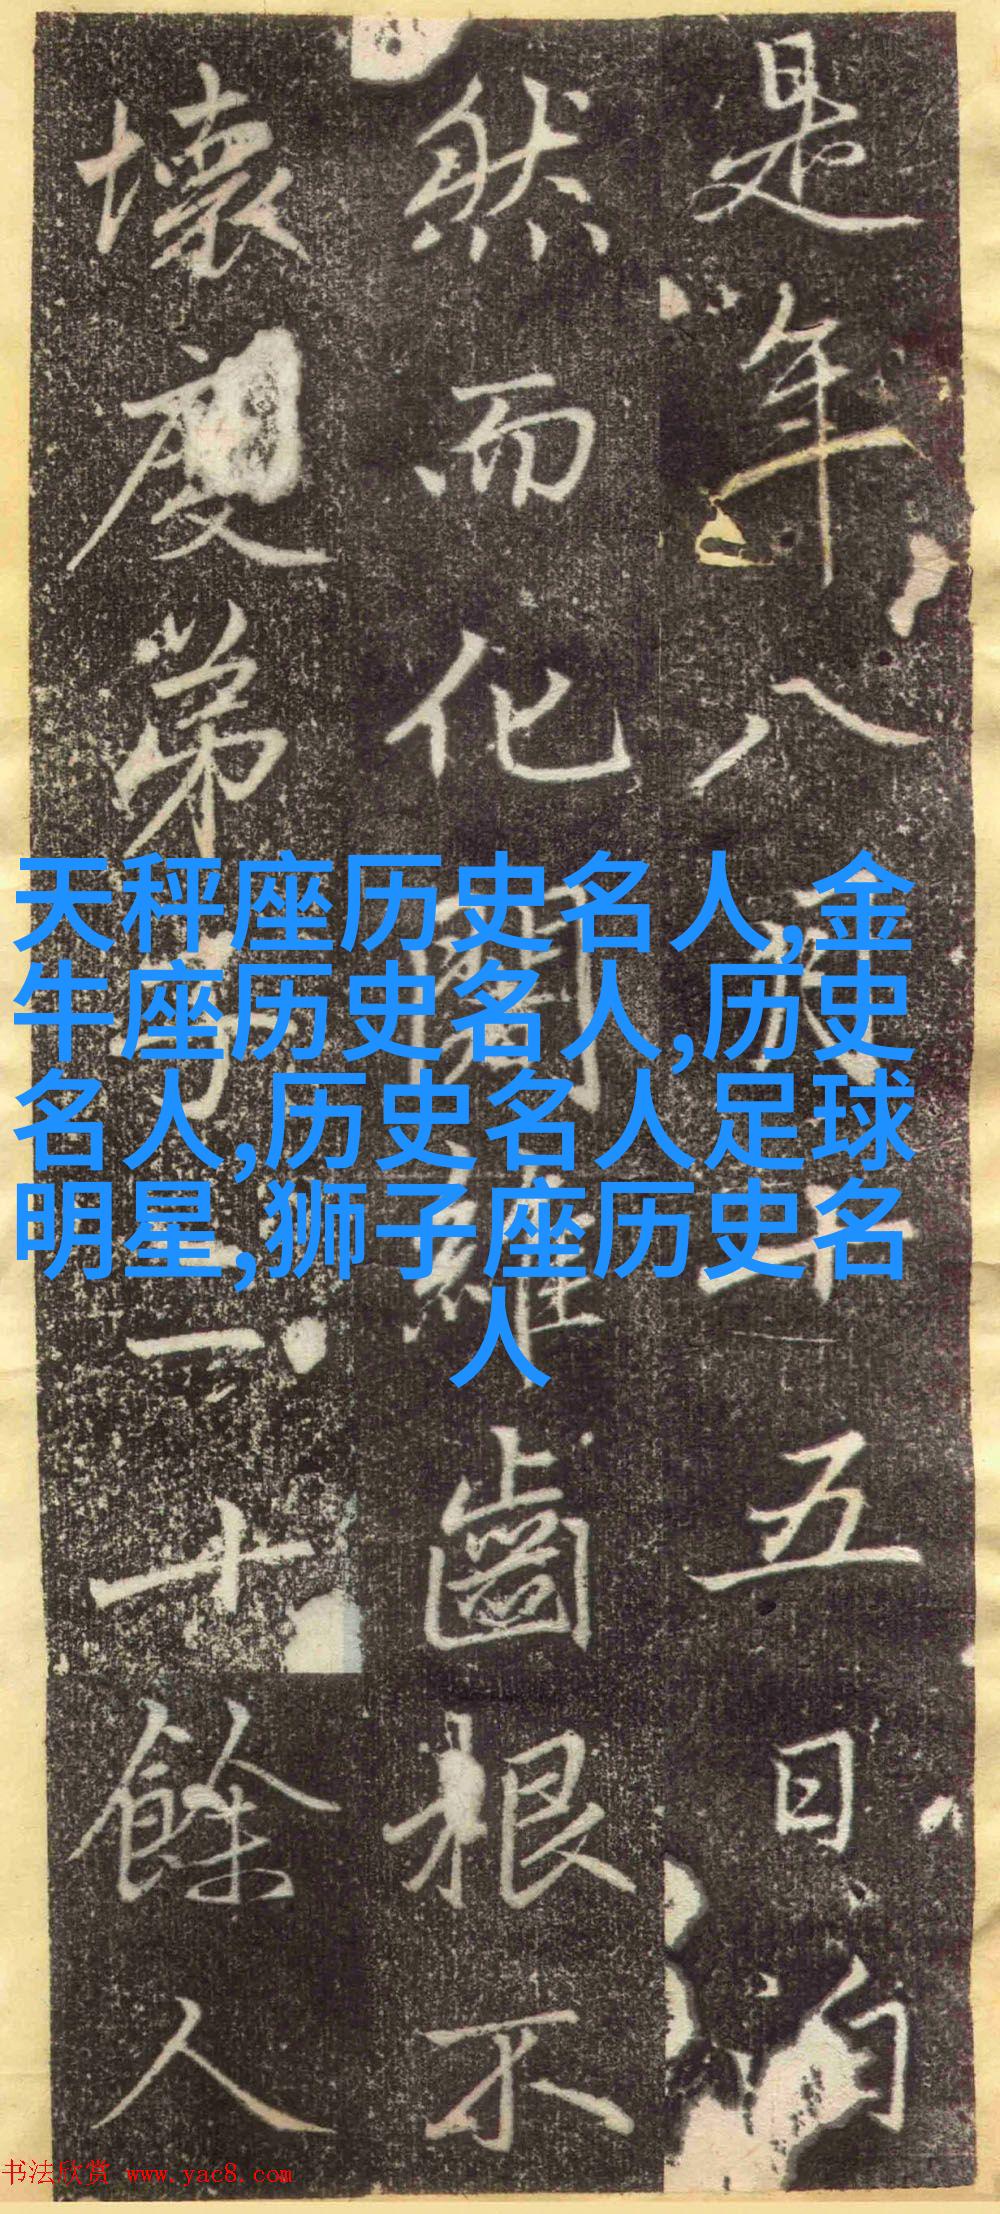 是年八月十五日
然而化闍維齒根不
壞度弟子三十餘人
天秤座历史名人,金
牛座历史名人,历史
名人,历史名人足球
明星,狮子座历史名
人
书法欣赏 www.yac8.com